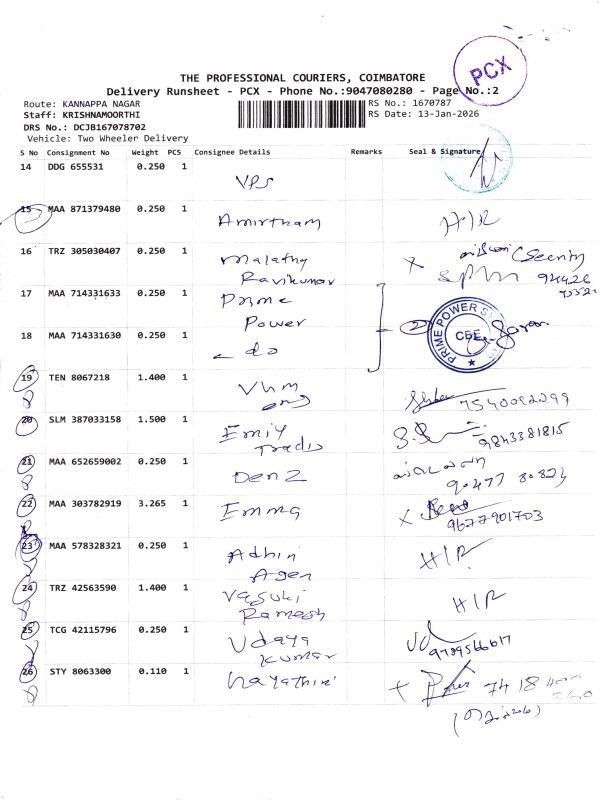 PCX
THE PROFESSIONAL COURIERS, COIMBATORE
Delivery Runsheet - PCX - Phone No.:9047080280 - Page No.:2
Route: KANNAPPA NAGAR
RS No.: 1670787
Staff: KRISHNAMOORTHI
RS Date: 13-Jan-2026
DRS No.: DCJB167078702
Vehicle: Two Wheeler Delivery
S No Consignment No Weight PCS Consignee Details Remarks Seal & Signature
14 DDG 655531 0.250 1 VPS
15 MAA 871379480 0.250 1 Amirtham H/R
16 TRZ 305030407 0.250 1 Malathy
Ravikumar
17 MAA 714331633 0.250 1 Prime
Power
PRIME POWER
CBE
18 MAA 714331630 0.250 1 do
19 TEN 8067218 1.400 1 Vhm
eng 7540092299
20 SLM 387033158 1.500 1 Emily
9843381815
21 MAA 652659002 0.250 1 Denz
22 MAA 303782919 3.265 1 Emma
9677901703
23 MAA 578328321 0.250 1 Adhin
Agen H/R
24 TRZ 42563590 1.400 1 Vasuki
Ramesh H/R
25 TCG 42115796 0.250 1 Udaya
Kumar 9789566617
26 STY 8063300 0.110 1